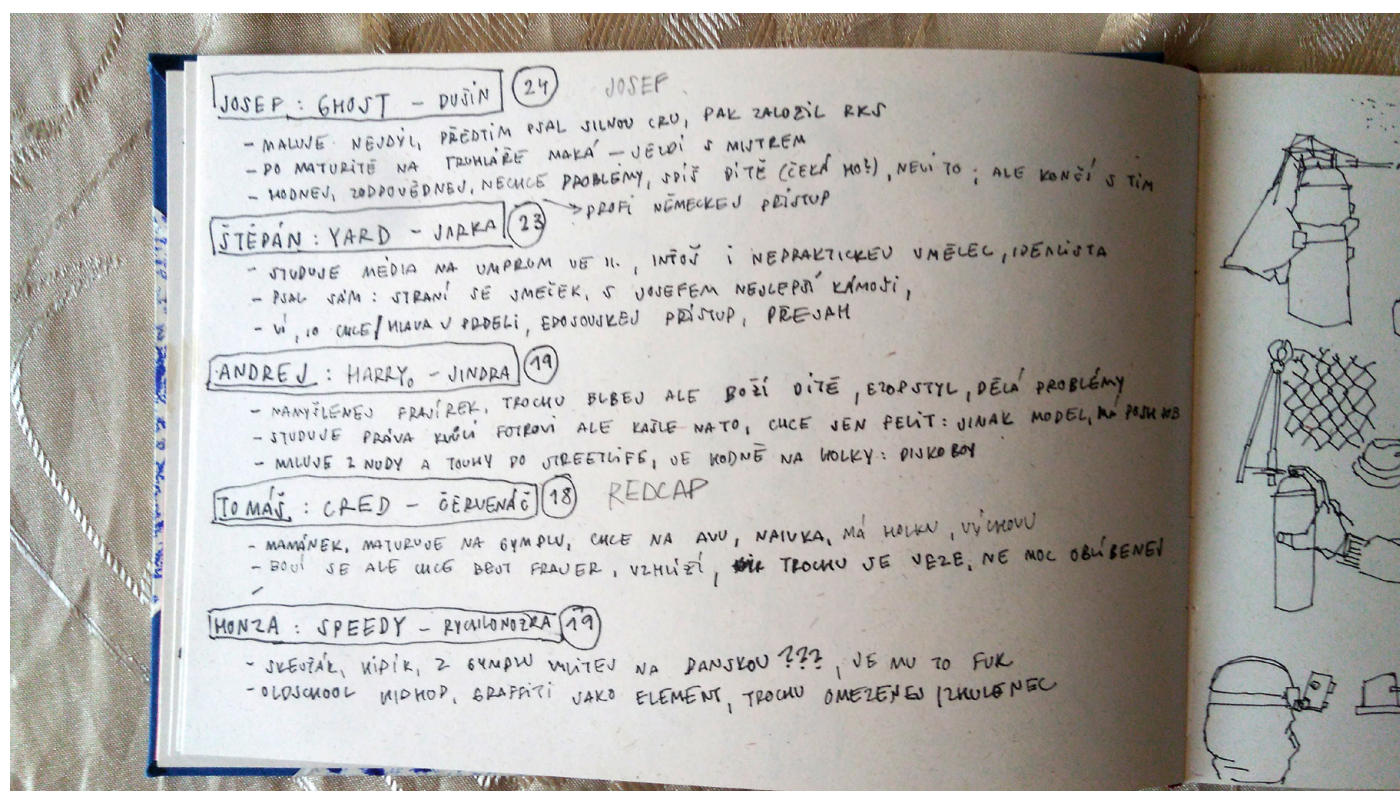 JOSEF : GHOST – DUŠÍN 24 JOSEF
– MALUJE NEJDÝL, PŘEDTÍM PSAL SILNOU CRU, PAK ZALOŽIL RKS
– PO MATURITĚ NA TRUHLÁŘE MAKÁ – JEZDÍ S MISTREM
– HODNEJ, ZODPOVĚDNEJ, NECHCE PROBLÉMY, SPÍŠ DÍTĚ (ČEKÁ HO!), NEVÍ TO ; ALE KONČÍ S TÍM
→ PROFI NĚMECKEJ PŘÍSTUP
ŠTĚPÁN : YARD – JARKA 23
– STUDUJE MÉDIA NA UMPRUM VE II., INTOŠ I NEPRAKTICKEJ UMĚLEC, IDEALISTA
– PSAL SÁM : STRANÍ SE SMEČEK, S JOSEFEM NEJLEPŠÍ KÁMOŠI,
– VÍ, CO CHCE / HLAVA V PRDELI, PŘÍSTUP, PŘESAH
ANDREJ : HARRY. – JINDRA 19
– NAMYŠLENEJ FRAJÍREK, TROCHU BLBEJ ALE BOŽÍ DÍTĚ, DĚLÁ PROBLÉMY
– STUDUJE PRÁVA KVŮLI FOTROVI ALE KAŠLE NA TO, CHCE JEN PELIT : JINAK MODEL, MÁ POSH
– MALUJE Z NUDY A TOUHY PO STREETLIFE, JE HODNĚ NA HOLKY : DISKO BOY
TOMÁŠ : CRED – ČERVENÁČ 18 REDCAP
– MAMÁNEK, MATURUJE NA GYMPLU, CHCE NA AVU, NAIVKA, MÁ HOLKU, VÝCHOVU
– BOJÍ SE ALE CHCE BEJT FRAJER, VZHLÍŽÍ, TROCHU SE VEZE, NE MOC OBLÍBENEJ
–
HONZA : SPEEDY – RYCHLONOŽKA 19
– SKEJŤÁK, HIPÍK, Z GYMPLU VYLITEJ NA DANSKOU ???, JE MU TO FUK
– OLDSCHOOL HIPHOP, GRAFFITI JAKO ELEMENT, TROCHU OMEZENEJ / ZHULENEC